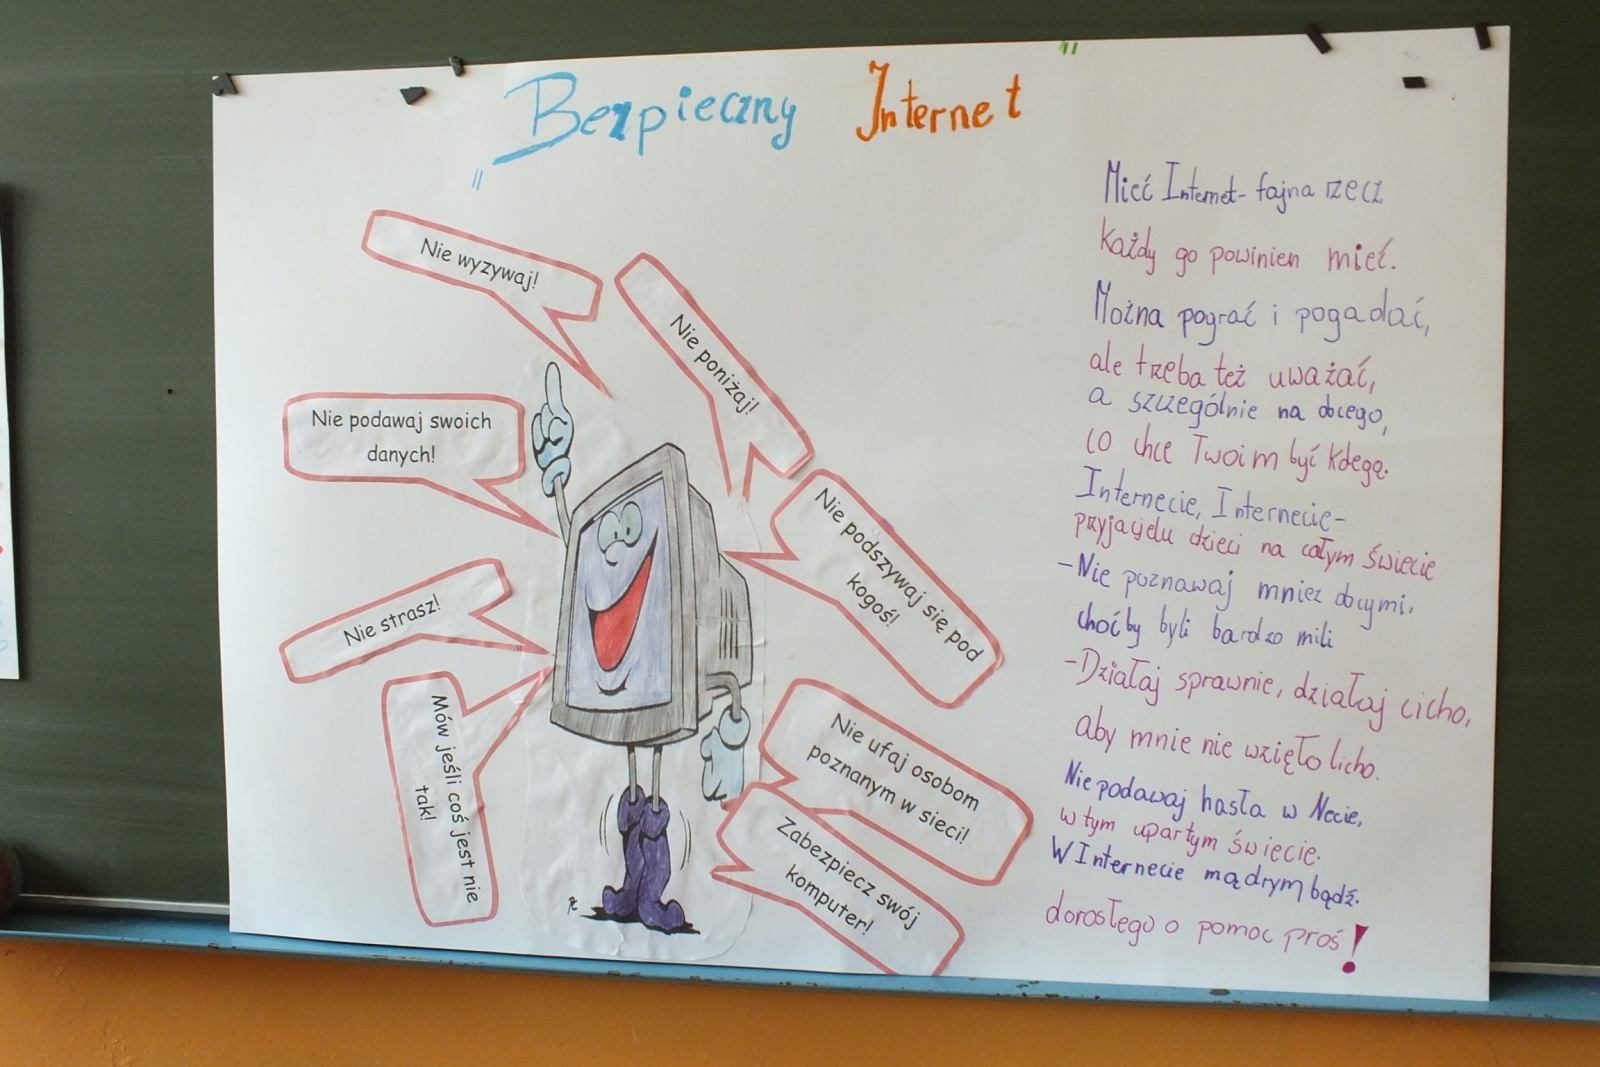 „Bezpieczny Internet"
Nie wyzywaj!
Nie poniżaj!
Nie podawaj swoich
danych!
Nie podszywaj się pod
kogoś!
Nie strasz!
Mów jeśli coś jest nie
tak!
Nie ufaj osobom
poznanym w sieci!
Zabezpiecz swój
komputer!
Mieć Internet- fajna rzecz
Każdy go powinien mieć.
Można pograć i pogadać,
ale trzeba też uważać,
a szczególnie na obcego,
co chce Twoim być kolegą.
Internecie, Internecie-
przyjacielu dzieci na całym świecie
-Nie poznawaj mniez obcymi,
choćby byli bardzo mili
-Działaj sprawnie, działaj cicho,
aby mnie nie wzięło licho.
Nie podawaj hasła w Necie,
w tym upartym świecie.
W Internecie mądrym bądź.
dorosłego o pomoc proś!